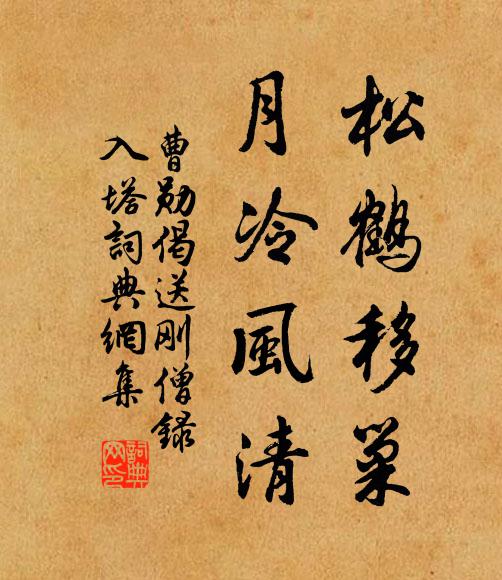 松鶴移巢
月冷風清
曹勛偈送剛僧錄
入塔詞典網集
詞典網印